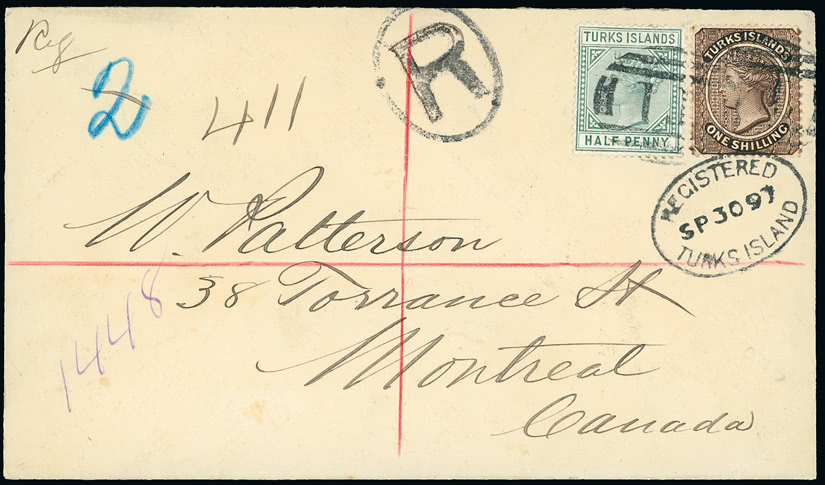 Reg
2
411
R
TURKS ISLANDS
HALF PENNY
TURKS ISLANDS
ONE SHILLING
REGISTERED
SP 30 97
TURKS ISLAND
W. Patterson
38 Torrance St
Montreal
Canada
1448